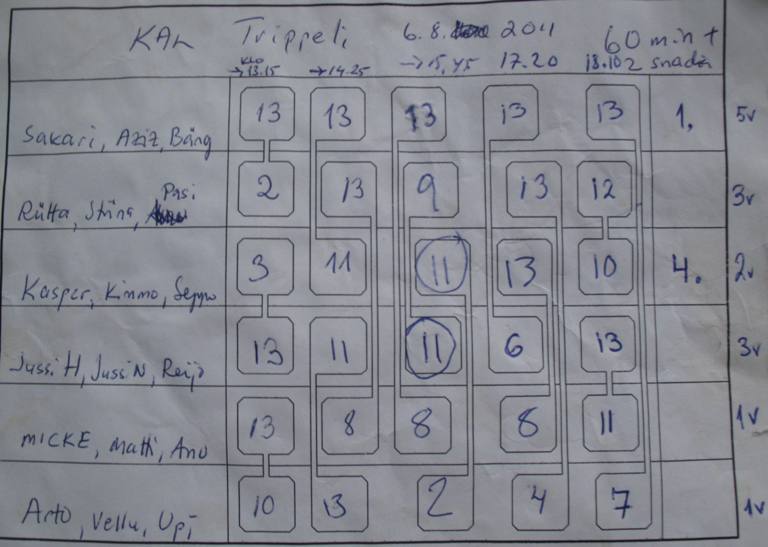 KAL Trippeli 6.8. 2011 60 min +
klo → 13.15 → 14.25 → 15.45 17.20 18.10 2 snadia
Sakari, Aziz, Bäng 13 13 13 13 13 1. 5v
Pasi
Riitta, Stina, 2 13 9 13 12 3v
Kasper, Kimmo, Seppo 3 11 11 13 10 4. 2v
Jussi H, Jussi N, Reijo 13 11 11 6 13 3v
MICKE, Matti, Anu 13 8 8 8 11 1v
Arto, Vellu, Upi 10 13 2 4 7 1v